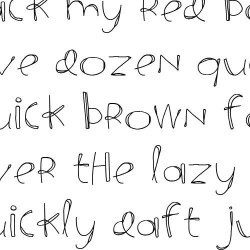 ck my Red b
ve dozen qu
uick brown f
ver the lazy
uickly daft ju